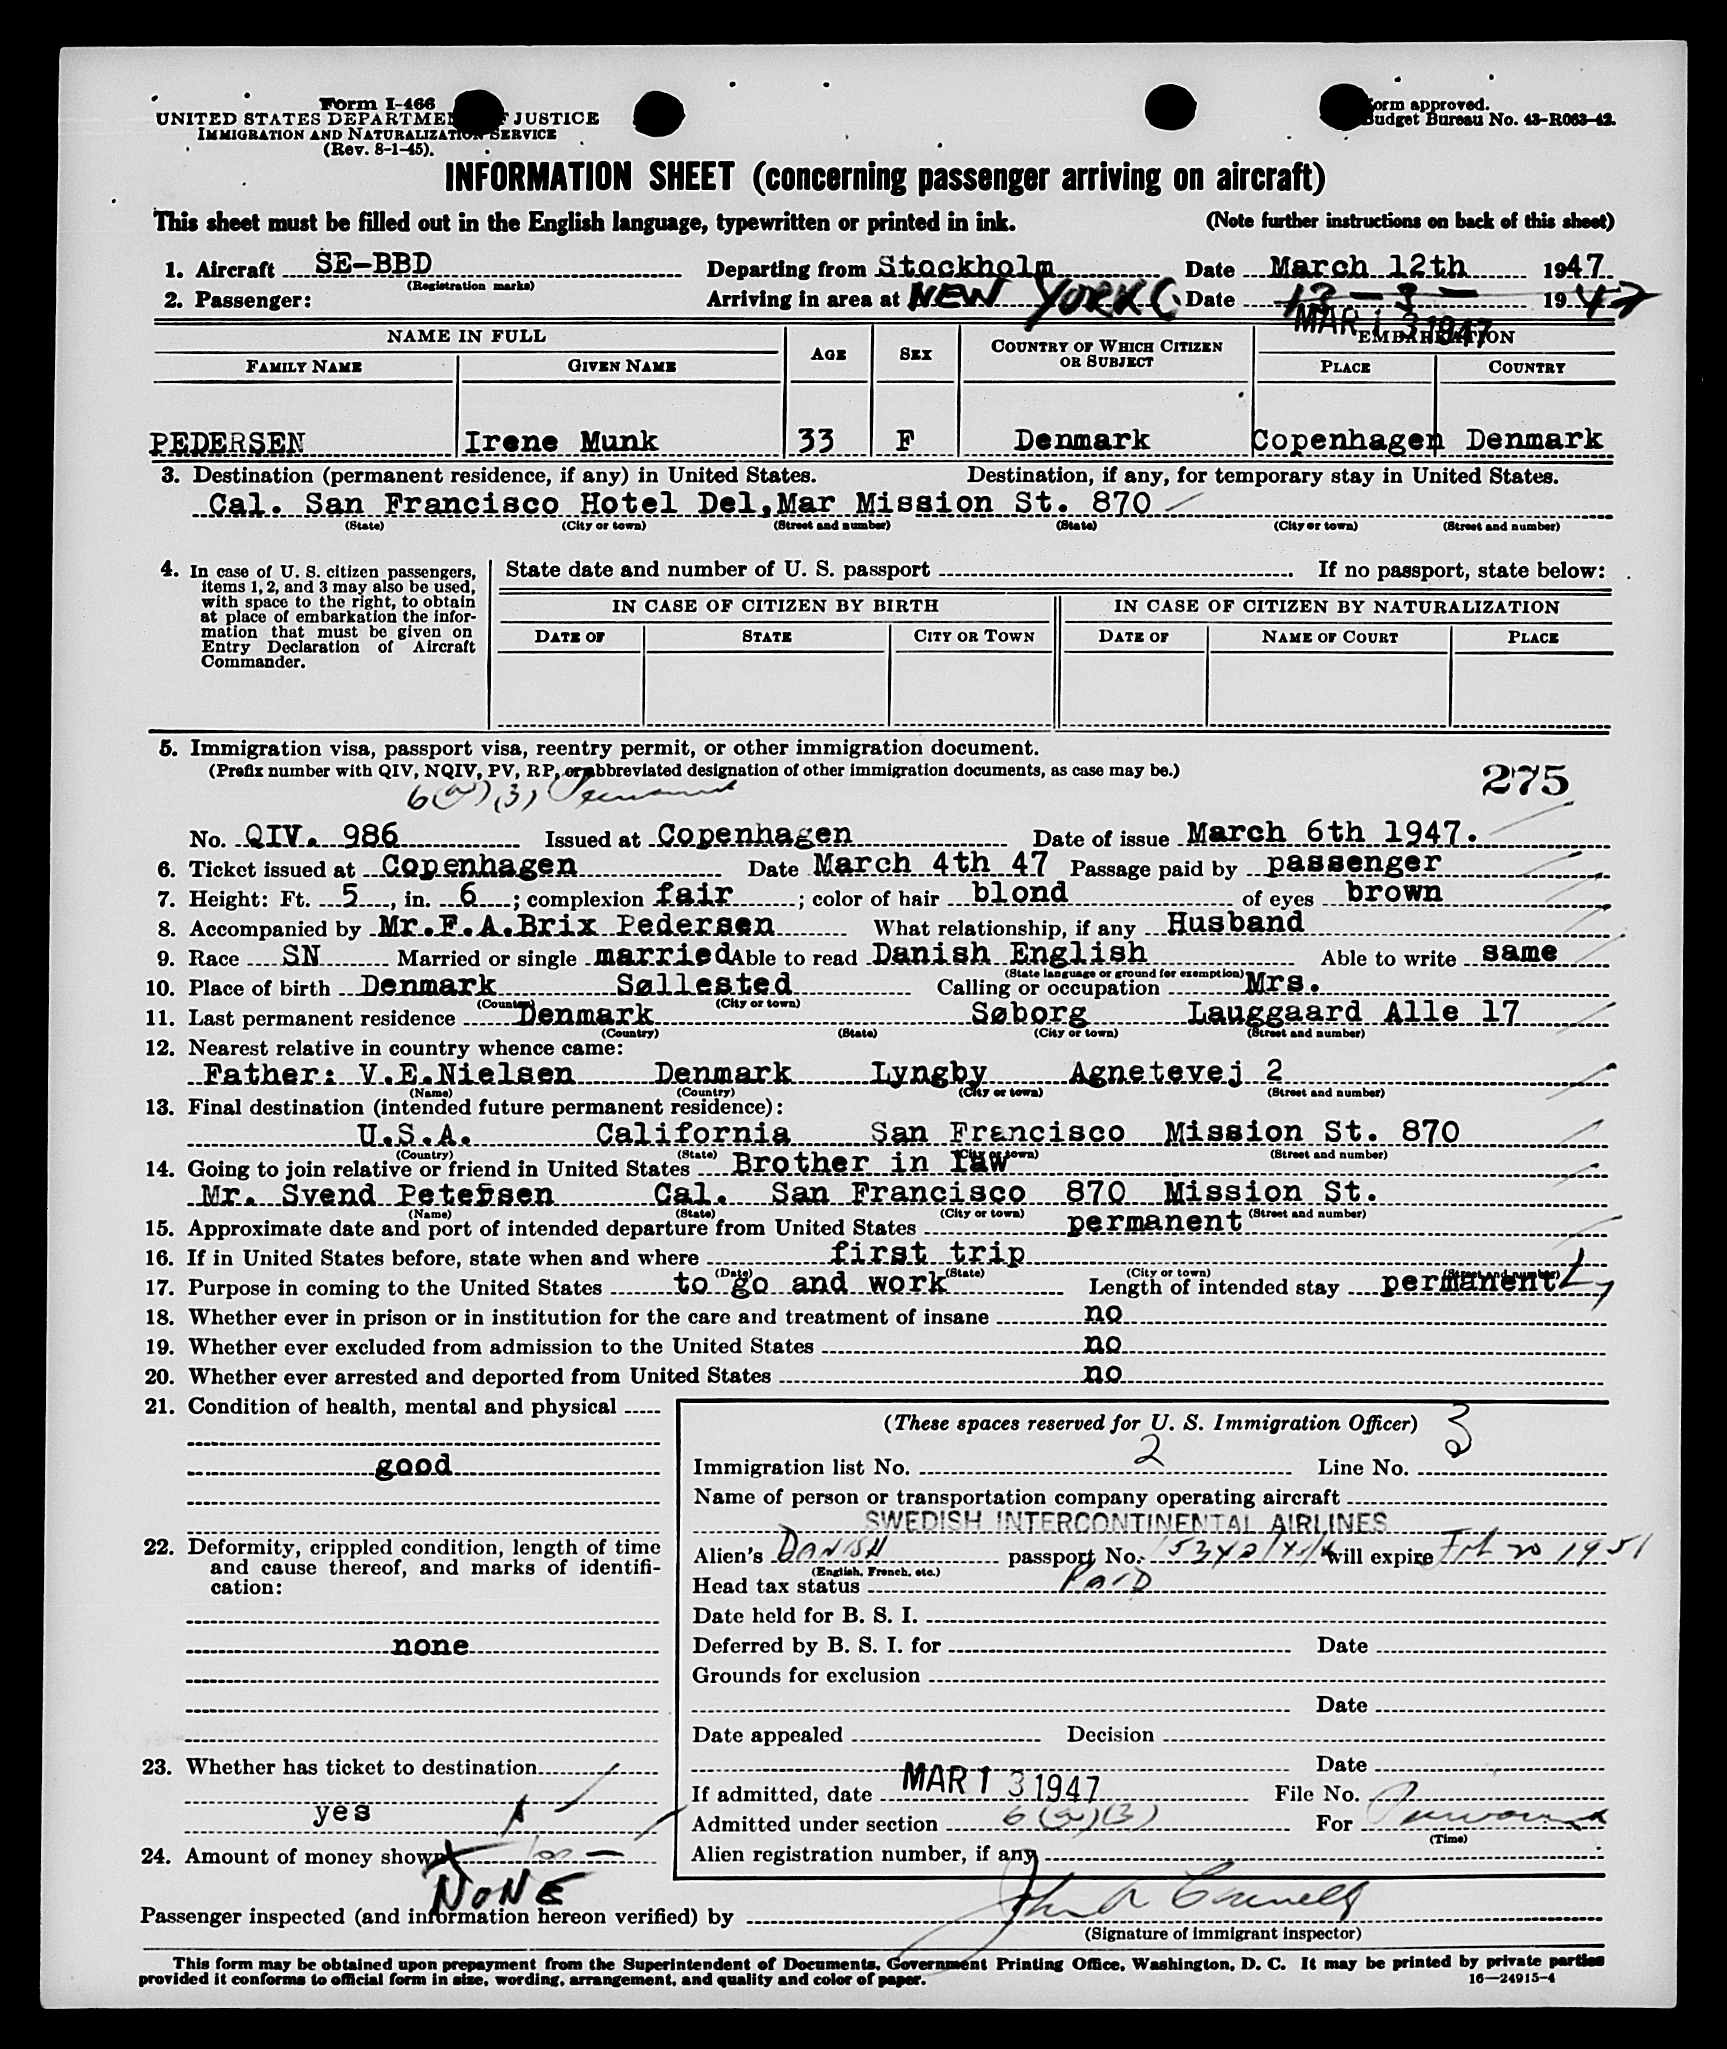 Form I-466
UNITED STATES DEPARTMENT OF JUSTICE
IMMIGRATION AND NATURALIZATION SERVICE
(Rev. 8-1-45).
Form approved.
Budget Bureau No. 43-R063-42.
INFORMATION SHEET (concerning passenger arriving on aircraft)
This sheet must be filled out in the English language, typewritten or printed in ink. (Note further instructions on back of this sheet)
1. Aircraft SE-BBD Departing from Stockholm Date March 12th 1947
(Registration marks)
2. Passenger: Arriving in area at NEW YORK Date 13-3- 1947
MAR 13 1947
NAME IN FULL AGE SEX COUNTRY OF WHICH CITIZEN OR SUBJECT EMBARKATION
FAMILY NAME GIVEN NAME PLACE COUNTRY
PEDERSEN Irene Munk 33 F Denmark Copenhagen Denmark
3. Destination (permanent residence, if any) in United States. Destination, if any, for temporary stay in United States.
Cal. San Francisco Hotel Del,Mar Mission St. 870
(State) (City or town) (Street and number) (State) (City or town) (Street and number)
4. In case of U. S. citizen passengers, items 1, 2, and 3 may also be used, with space to the right, to obtain at place of embarkation the information that must be given on Entry Declaration of Aircraft Commander.
State date and number of U. S. passport If no passport, state below:
IN CASE OF CITIZEN BY BIRTH IN CASE OF CITIZEN BY NATURALIZATION
DATE OF STATE CITY OR TOWN DATE OF NAME OF COURT PLACE
5. Immigration visa, passport visa, reentry permit, or other immigration document.
(Prefix number with QIV, NQIV, PV, RP, or abbreviated designation of other immigration documents, as case may be.)
6(a)(3) Permanent
275
No. QIV. 986 Issued at Copenhagen Date of issue March 6th 1947.
6. Ticket issued at Copenhagen Date March 4th 47 Passage paid by passenger
7. Height: Ft. 5, in. 6; complexion fair; color of hair blond of eyes brown
8. Accompanied by Mr.F.A.Brix Pedersen What relationship, if any Husband
9. Race SN Married or single married Able to read Danish English Able to write same
(State language or ground for exemption)
10. Place of birth Denmark Søllested Calling or occupation Mrs.
(Country) (City or town)
11. Last permanent residence Denmark Søborg Lauggaard Alle 17
(Country) (State) (City or town) (Street and number)
12. Nearest relative in country whence came:
Father: V.E.Nielsen Denmark Lyngby Agnetevej 2
(Name) (Country) (City or town) (Street and number)
13. Final destination (intended future permanent residence):
U.S.A. California San Francisco Mission St. 870
(Country) (State) (City or town) (Street and number)
14. Going to join relative or friend in United States Brother in law
Mr. Svend Petersen Cal. San Francisco 870 Mission St.
(Name) (State) (City or town) (Street and number)
15. Approximate date and port of intended departure from United States permanent
16. If in United States before, state when and where first trip
(Date) (State) (City or town) (Street and number)
17. Purpose in coming to the United States to go and work Length of intended stay permanent
18. Whether ever in prison or in institution for the care and treatment of insane no
19. Whether ever excluded from admission to the United States no
20. Whether ever arrested and deported from United States no
21. Condition of health, mental and physical
good
22. Deformity, crippled condition, length of time and cause thereof, and marks of identification:
none
23. Whether has ticket to destination
yes
24. Amount of money shown
NONE
(These spaces reserved for U. S. Immigration Officer)
Immigration list No. 2 Line No. 3
Name of person or transportation company operating aircraft
SWEDISH INTERCONTINENTAL AIRLINES
Alien's DANISH passport No. will expire Feb 20 1951
(English, French, etc.)
Head tax status PAID
Date held for B. S. I.
Deferred by B. S. I. for Date
Grounds for exclusion
Date
Date appealed Decision
Date
If admitted, date MAR 13 1947 File No.
Admitted under section 6(a)(3) For Permanent
(Time)
Alien registration number, if any
Passenger inspected (and information hereon verified) by
(Signature of immigrant inspector)
This form may be obtained upon prepayment from the Superintendent of Documents, Government Printing Office, Washington, D. C. It may be printed by private parties
provided it conforms to official form in size, wording, arrangement, and quality and color of paper. 16—24915-4